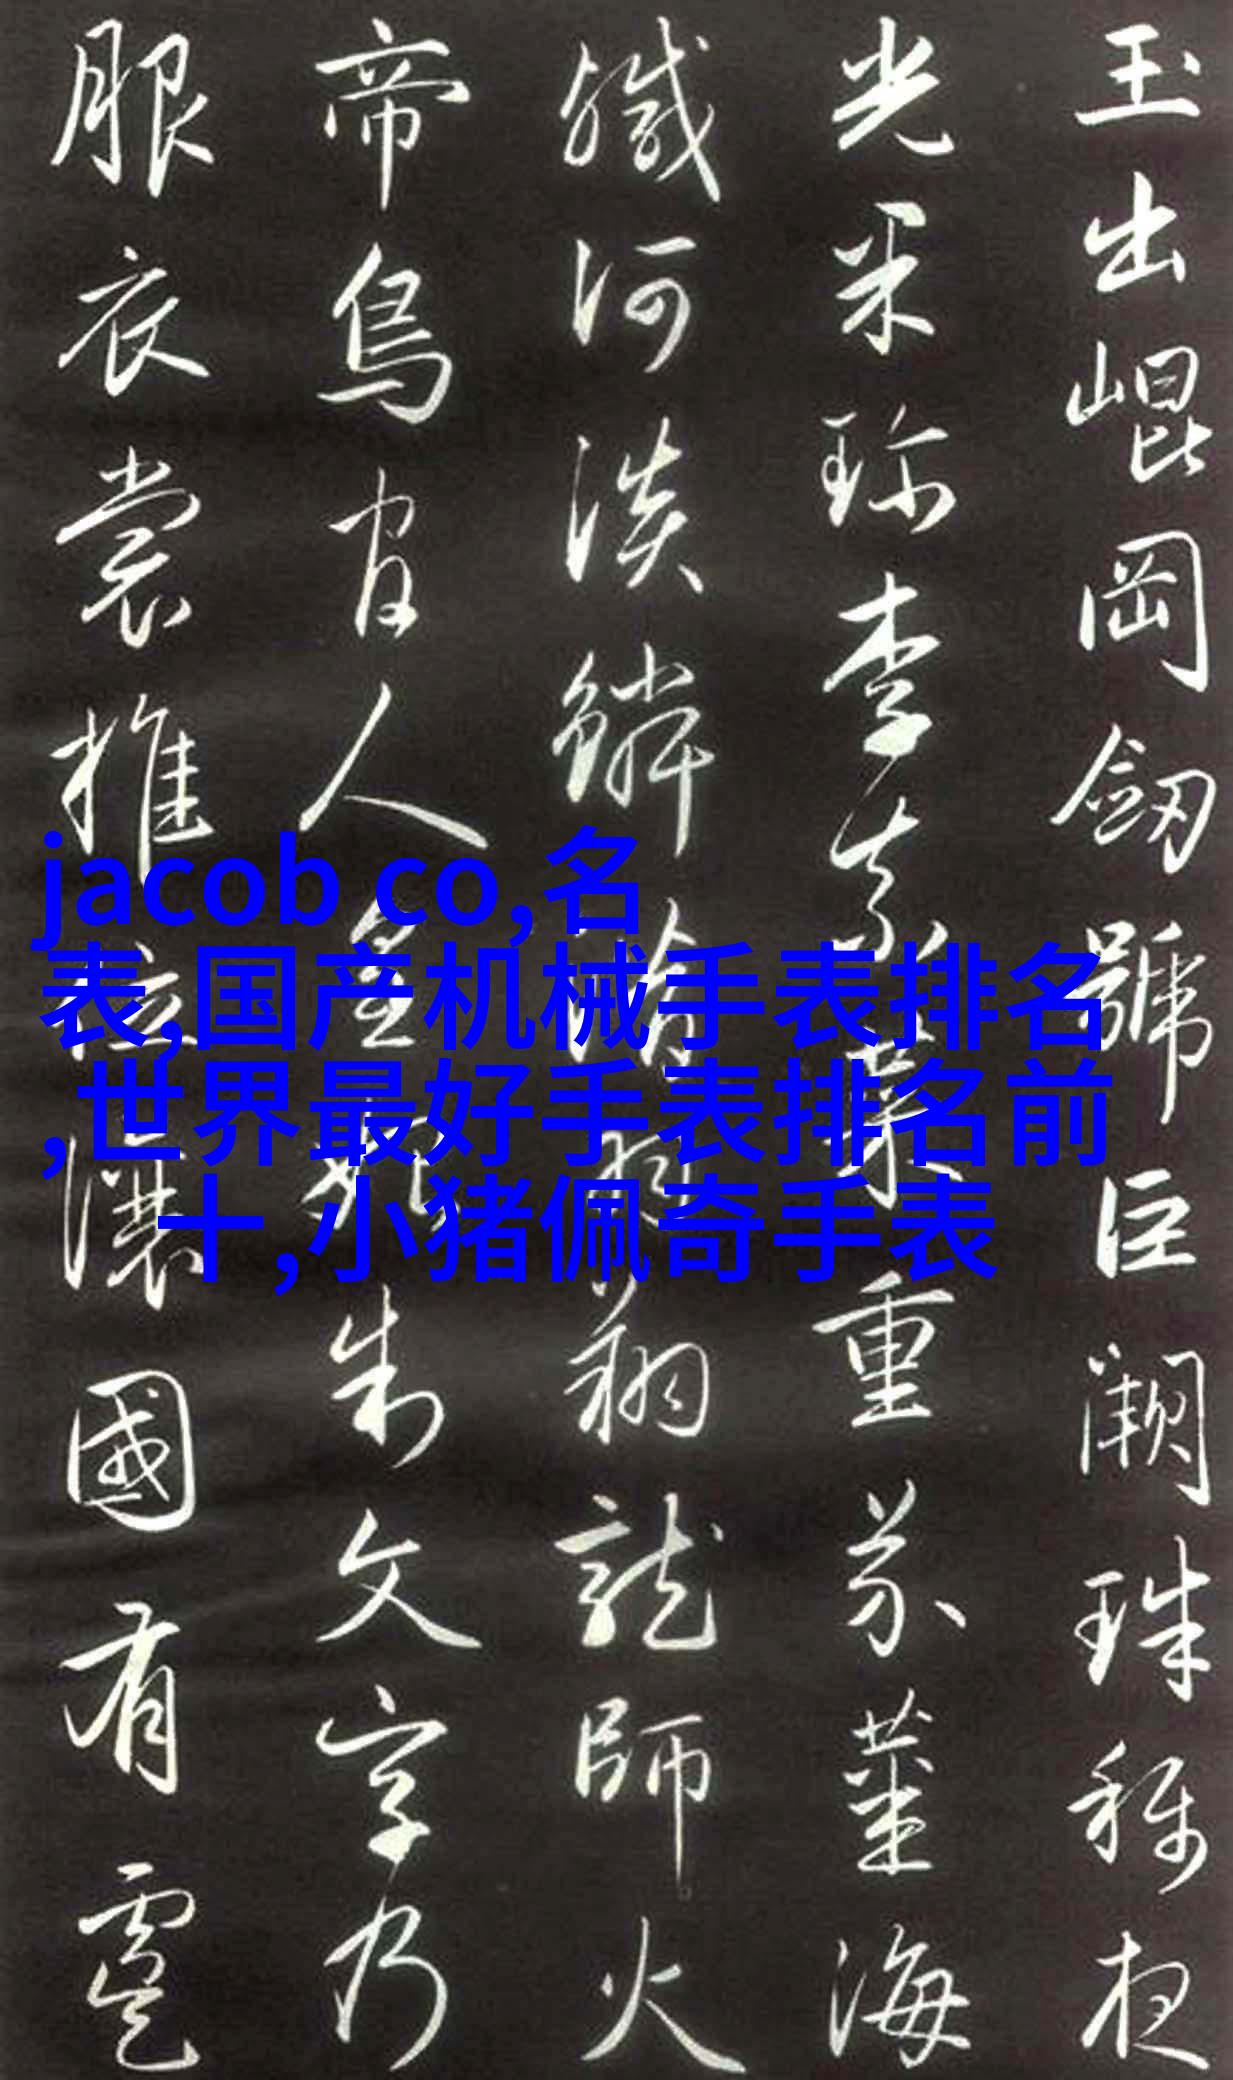 玉出崐岡劒號巨闕珠称夜
光果珍李柰菜重芥薑海
鹹河淡鱗潛羽翔龍師火
帝鳥官人皇始制文字乃
服衣裳推位讓國有虞
jacob co,名
表,国产机械手表排名
,世界最好手表排名前
十,小猪佩奇手表